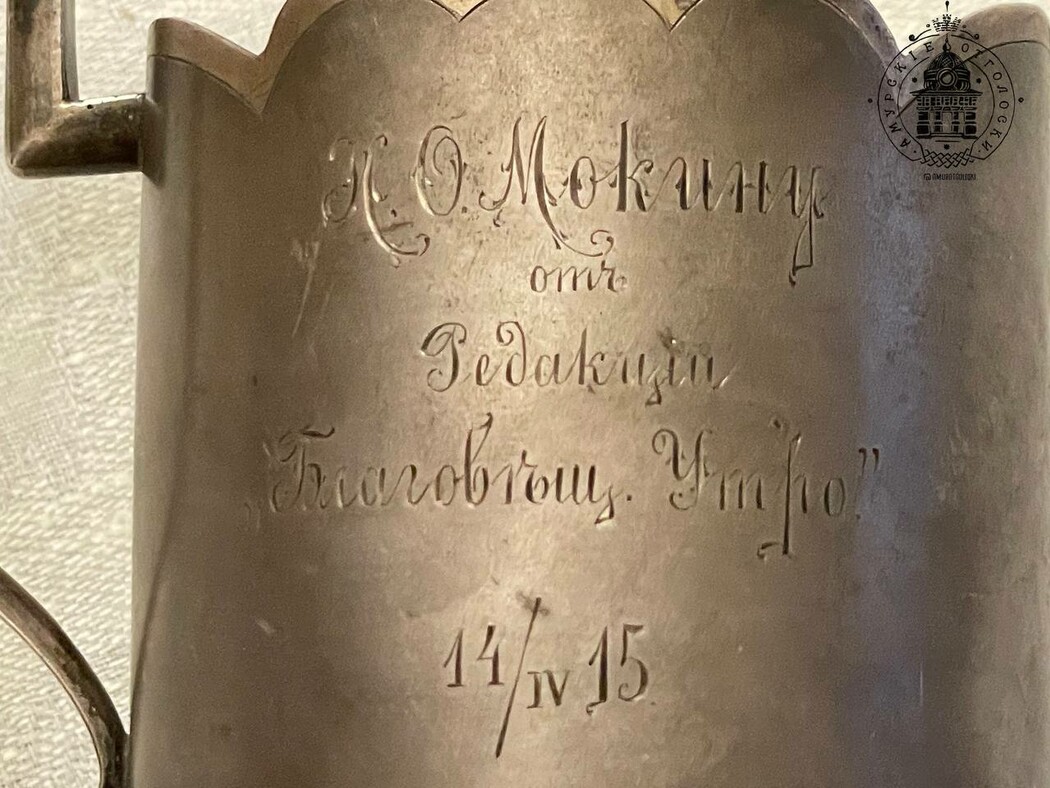 К. О. Мокину
отъ
Редакціи
„Благовѣщ. Утро"
14/IV 15
АМУРСКІЕ ОТГОЛОСКИ